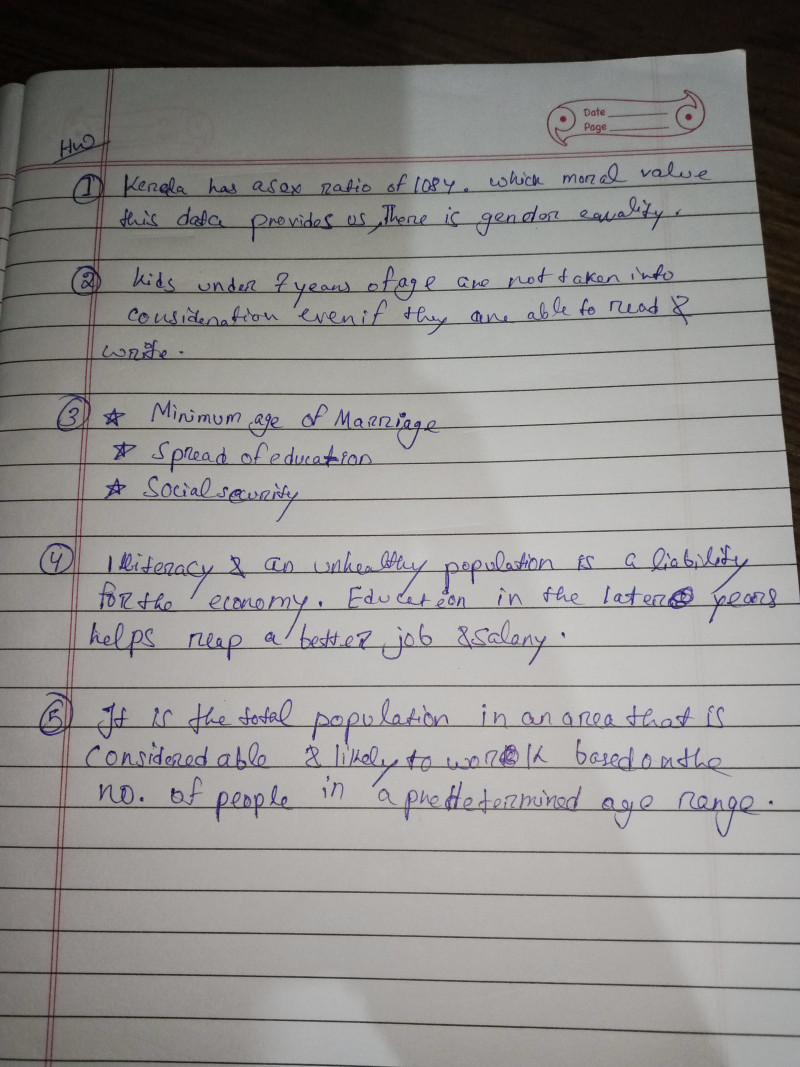 Date
Page
HW
① Kerala has a sex ratio of 1084. which moral value
this data provides us, There is gender equality.
② kids under 7 years of age are not taken into
consideration even if they are able to read &
write.
③ ☆ Minimum age of Marriage
☆ Spread of education
☆ Social security
④ Illiteracy & an unhealthy population is a liability
for the economy. Education in the later years
helps reap a better job & salary.
⑤ It is the total population in an area that is
considered able & likely to work based on the
no. of people in a predetermined age range.